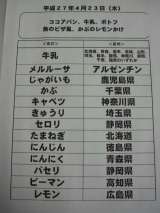 平成27年4月23日（木）
ココアパン、牛乳、ポトフ
魚のピザ風、かぶのレモンかけ
牛乳
メルルーサ アルゼンチン
じゃがいも 鹿児島県
かぶ 千葉県
キャベツ 神奈川県
きゅうり 埼玉県
セロリ 静岡県
たまねぎ 北海道
にんじん 徳島県
にんにく 青森県
パセリ 静岡県
ピーマン 高知県
レモン 広島県